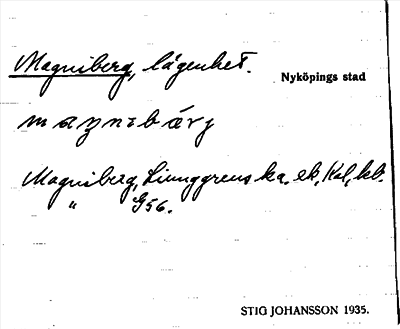 Magniberg, lägenhet.
Nyköpings stad
Magniberg, Ljunggrens ka. ek, Kal, kb.
" G56.
STIG JOHANSSON 1935.